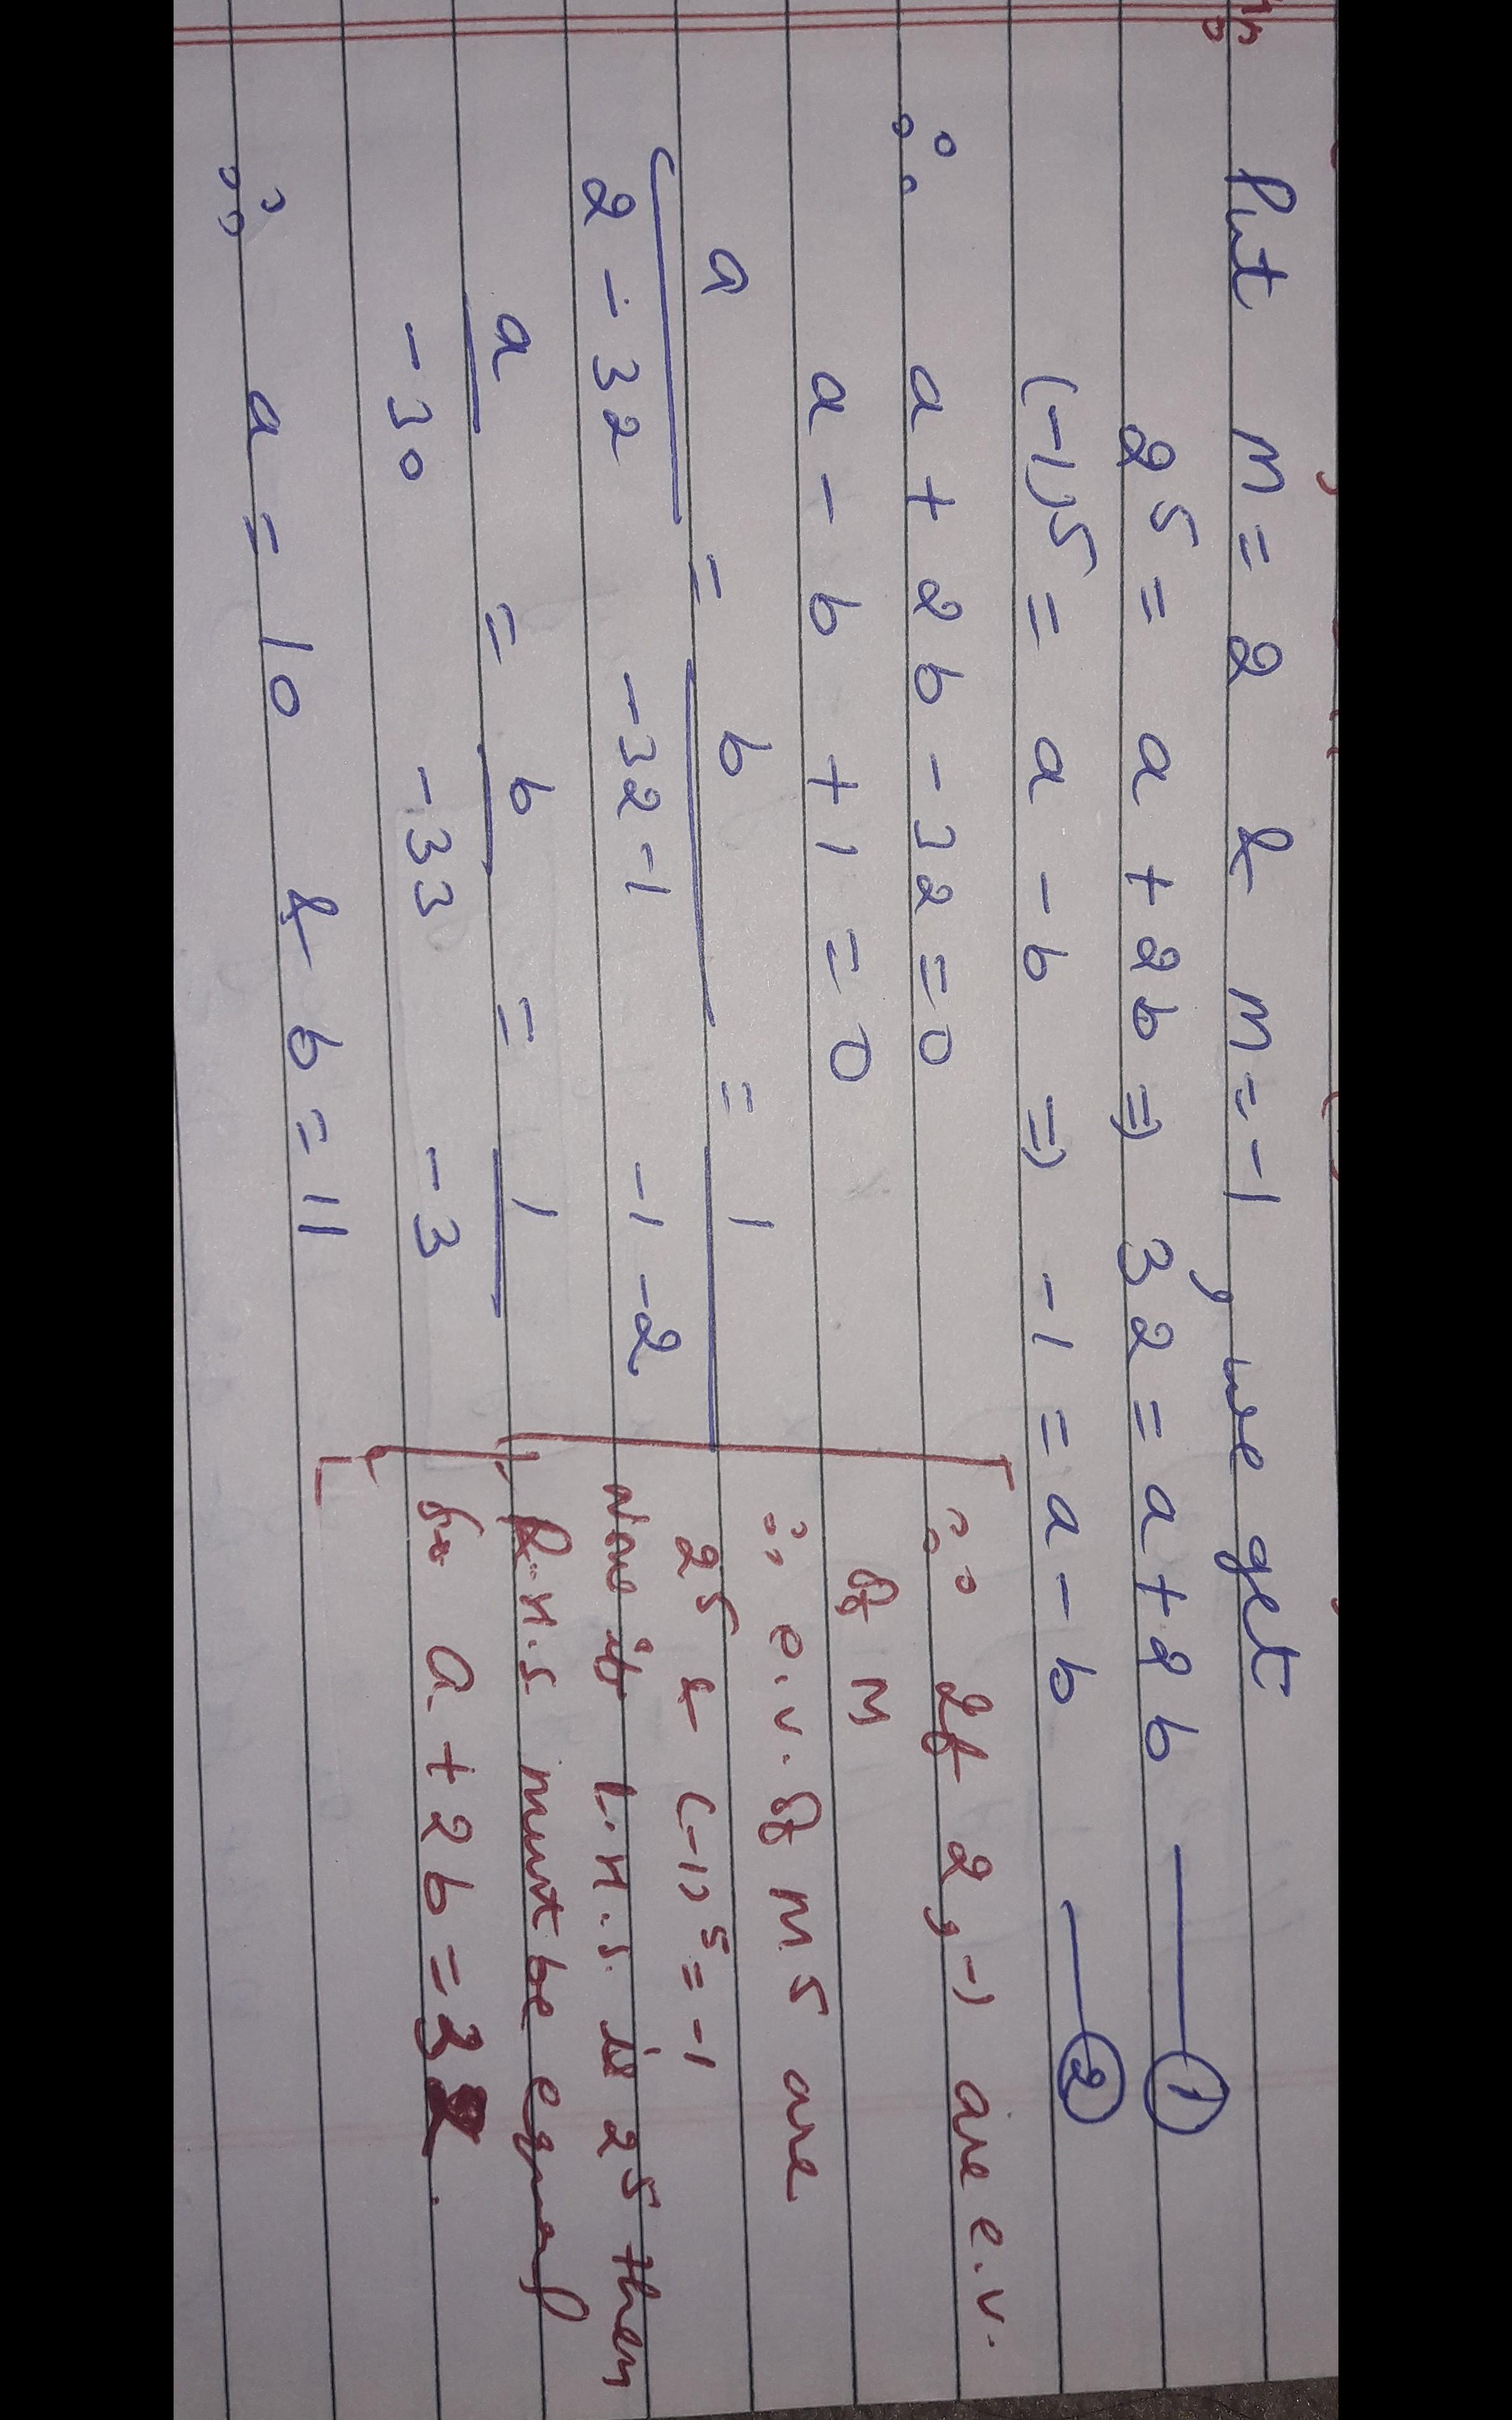 Put M = 2 & M = -1, we get
2⁵ = a + 2b ⇒ 32 = a + 2b —— ①
(-1)⁵ = a - b ⇒ -1 = a - b —— ②
∴ a + 2b - 32 = 0
a - b + 1 = 0
a / (2 - 32) = b / (-32 - 1) = 1 / (-1 - 2)
a / -30 = b / -33 = 1 / -3
∴ a = 10 & b = 11
∵ If 2, -1 are e.v.
of M
∴ e.v. of M5 are
2⁵ & (-1)⁵ = -1
Now if L.H.S. is 2⁵ then
R.H.S must be equal
to a + 2b = 32.